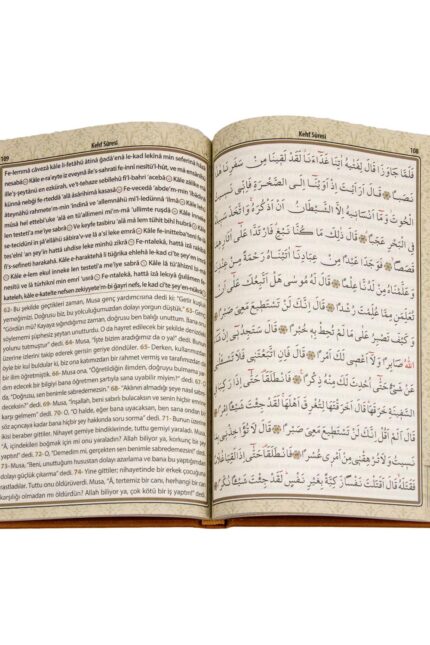 Kehf Sûresi
108
فَلَمَّا جَاوَزَا قَالَ لِفَتٰيهُ اٰتِنَا غَدَٓاءَنَا لَقَدْ لَقٖينَا مِنْ سَفَرِنَا هٰذَا
نَصَبًا ۝ قَالَ اَرَاَيْتَ اِذْ اَوَيْنَٓا اِلَى الصَّخْرَةِ فَاِنّٖي نَسٖيتُ
الْحُوتَ وَمَٓا اَنْسَانٖيهُ اِلَّا الشَّيْطَانُ اَنْ اَذْكُرَهُ وَاتَّخَذَ سَبٖيلَهُ
فِي الْبَحْرِ عَجَبًا ۝ قَالَ ذٰلِكَ مَا كُنَّا نَبْغِ فَارْتَدَّا عَلٰٓى اٰثَارِهِمَا
قَصَصًا ۝ فَوَجَدَا عَبْدًا مِنْ عِبَادِنَٓا اٰتَيْنَاهُ رَحْمَةً مِنْ عِنْدِنَا
وَعَلَّمْنَاهُ مِنْ لَدُنَّا عِلْمًا ۝ قَالَ لَهُ مُوسٰى هَلْ اَتَّبِعُكَ عَلٰٓى اَنْ
تُعَلِّمَنِ مِمَّا عُلِّمْتَ رُشْدًا ۝ قَالَ اِنَّكَ لَنْ تَسْتَطٖيعَ مَعِيَ صَبْرًا
۝ وَكَيْفَ تَصْبِرُ عَلٰى مَا لَمْ تُحِطْ بِهٖ خُبْرًا ۝ قَالَ سَتَجِدُنٖٓي اِنْ شَٓاءَ
اللّٰهُ صَابِرًا وَلَٓا اَعْصٖي لَكَ اَمْرًا ۝ قَالَ فَاِنِ اتَّبَعْتَنٖي فَلَا تَسْـَٔلْنٖي
عَنْ شَيْءٍ حَتّٰٓى اُحْدِثَ لَكَ مِنْهُ ذِكْرًا ۝ فَانْطَلَقَا حَتّٰٓى اِذَا رَكِبَا فِي
السَّفٖينَةِ خَرَقَهَا قَالَ اَخَرَقْتَهَا لِتُغْرِقَ اَهْلَهَا لَقَدْ جِئْتَ شَيْـًٔا اِمْرًا ۝
قَالَ اَلَمْ اَقُلْ اِنَّكَ لَنْ تَسْتَطٖيعَ مَعِيَ صَبْرًا ۝ قَالَ لَا تُؤَاخِذْنٖي بِمَا
نَسٖيتُ وَلَا تُرْهِقْنٖي مِنْ اَمْرٖي عُسْرًا ۝ فَانْطَلَقَا حَتّٰٓى اِذَا لَقِيَا غُلَامًا
فَقَتَلَهُ قَالَ اَقَتَلْتَ نَفْسًا زَكِيَّةً بِغَيْرِ نَفْسٍ لَقَدْ جِئْتَ شَيْـًٔا نُكْرًا ۝
109
Kehf Sûresi
Fe-lemmâ câvezâ kâle li-fetâhü âtinâ ğadâ'enâ le-kad lekînâ min seferinâ hâzâ
nesabâ Kâle e-ra'eyte iz eveynâ ile's-sahrati fe-innî nesîtü'l-hût, ve mâ
ile'ş-şeytânü en ezkürah, ve't-tehaze sebîlehû fi'l-bahri 'acebâ Kâle zâlike mâ
künnâ nebği fe-rteddâ 'alâ âsârihimâ kasasâ Fe-vecedâ 'abde'm-min 'ibâdinâ
âteynâhü rahmete'm-min 'indinâ ve 'allemnâhü mi'l-ledünnâ 'ilmâ Kâle lehû
mûsâ hel ettebi'uke 'alâ en tü'allimeni mi'm-mâ 'ullimte ruşdâ Kâle inneke
len testetî'a me'iye sabrâ Ve keyfe tasbiru 'alâ mâ lem tühit bihî hubrâ Kâle
se-tecidünî in şâ'ellâhü sâbira'v-ve lâ a'sî leke emrâ Kâle fe-initteba'tenî fe-lâ
tes'elnî 'an şey'in hattâ uhdise leke minhü zikrâ Fe-ntalekâ, hattâ izâ rakibâ
fi's-sefîneti harakahâ Kâle e-haraktehâ li tuğrika ehlehâ le-kad ci'te şey'en imrâ
Kâle e-lem ekul inneke len testetî'a me'iye sabrâ Kâle lâ tü'âhiznî bimâ
nesîtü ve lâ türhiknî min emrî 'usrâ Fe-ntalekâ, hattâ izâ lekıyâ ğulâmen fe-
katelehû, kâle e-katelte nefsen zekiyyete'm-bi ğayri nefs, le kad ci'te şey'en nükrâ
62- Bu şekilde geçtikleri zaman, Musa genç yardımcısına dedi ki: "Getir kuşluk
yemeğimizi. Doğrusu biz, bu yolculuğumuzdan dolayı yorgun düştük." 63- Genç:
"Gördün mü? Kayaya sığındığımız zaman, doğrusu ben balığı unuttum. Bana onu
söylememi şüphesiz şeytan unutturdu. O da hayret edilecek bir şekilde denizde
yolunu tutmuştu" dedi. 64- Musa, "İşte bizim aradığımız da o ya!" dedi. Bunun
üzerine izlerini takip ederek gerisin geriye döndüler. 65- Derken, kullarımızdan
öyle bir kul buldular ki, biz ona katımızdan bir rahmet vermiş ve tarafımızdan
bir ilim öğretmiştik. 66- Musa ona, "Öğretildiğin ilimden, doğruyu bulmama yar-
dım edecek bir bilgiyi bana öğretmen şartıyla sana uyabilir miyim?" dedi. 67- O
da, "Doğrusu, sen benimle sabredemezsin" dedi. 68- "Aklının almadığı şeye nasıl
sabredeceksin?" 69- Musa, "İnşallah, beni sabırlı bulacaksın ve senin hiçbir emrine
karşı gelmem" dedi. 70- O, "O halde, eğer bana uyacaksan, ben sana ondan bir
söz açıncaya kadar bana hiçbir şey hakkında soru sorma" dedi. 71- Bunun üzerine
ikisi beraber gittiler. Nihayet gemiye bindiklerinde, tuttu gemiyi yaraladı. Musa,
"A, içindekileri boğmak için mi onu yaraladın? Allah biliyor ya, korkunç bir şey
yaptın" dedi. 72- O, "Demedim mi, gerçekten sen benimle sabredemezsin?" dedi.
73- Musa, "Beni, unuttuğum hususdan dolayı azarlama ve bana bu işimden dolayı
güçlük çıkarma" dedi. 74- Yine gittiler; nihayetinde bir erkek çocuğa
rastladılar. Tuttu onu öldürüverdi. Musa, "A, tertemiz bir canı, herhangi bir can
karşılığı olmadan mı öldürdün? Allah biliyor ya, çok kötü bir iş yaptın!" dedi.